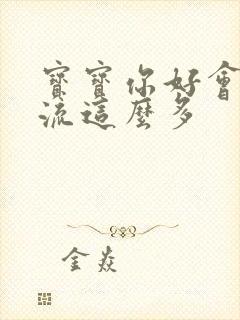 寶寶你好會
流這麼多
金焱